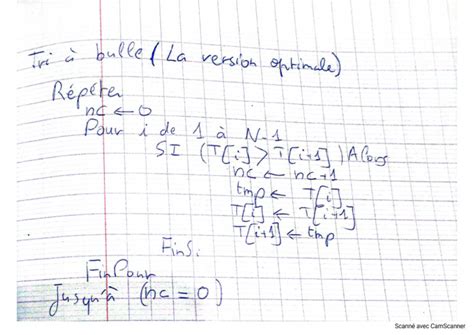 Tri à bulle ( La version optimale)
Répéter
nc ← 0
Pour i de 1 à N-1
SI (T[i] > T[i+1]) Alors
nc ← nc+1
tmp ← T[i]
T[i] ← T[i+1]
T[i+1] ← tmp
FinSi
FinPour
Jusqu'à (nc = 0)
Scanné avec CamScanner